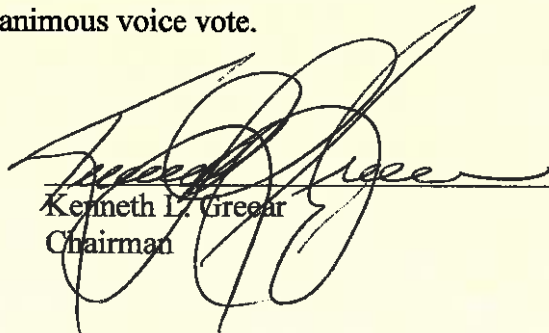 animous voice vote.
Kenneth L. Greear
Chairman